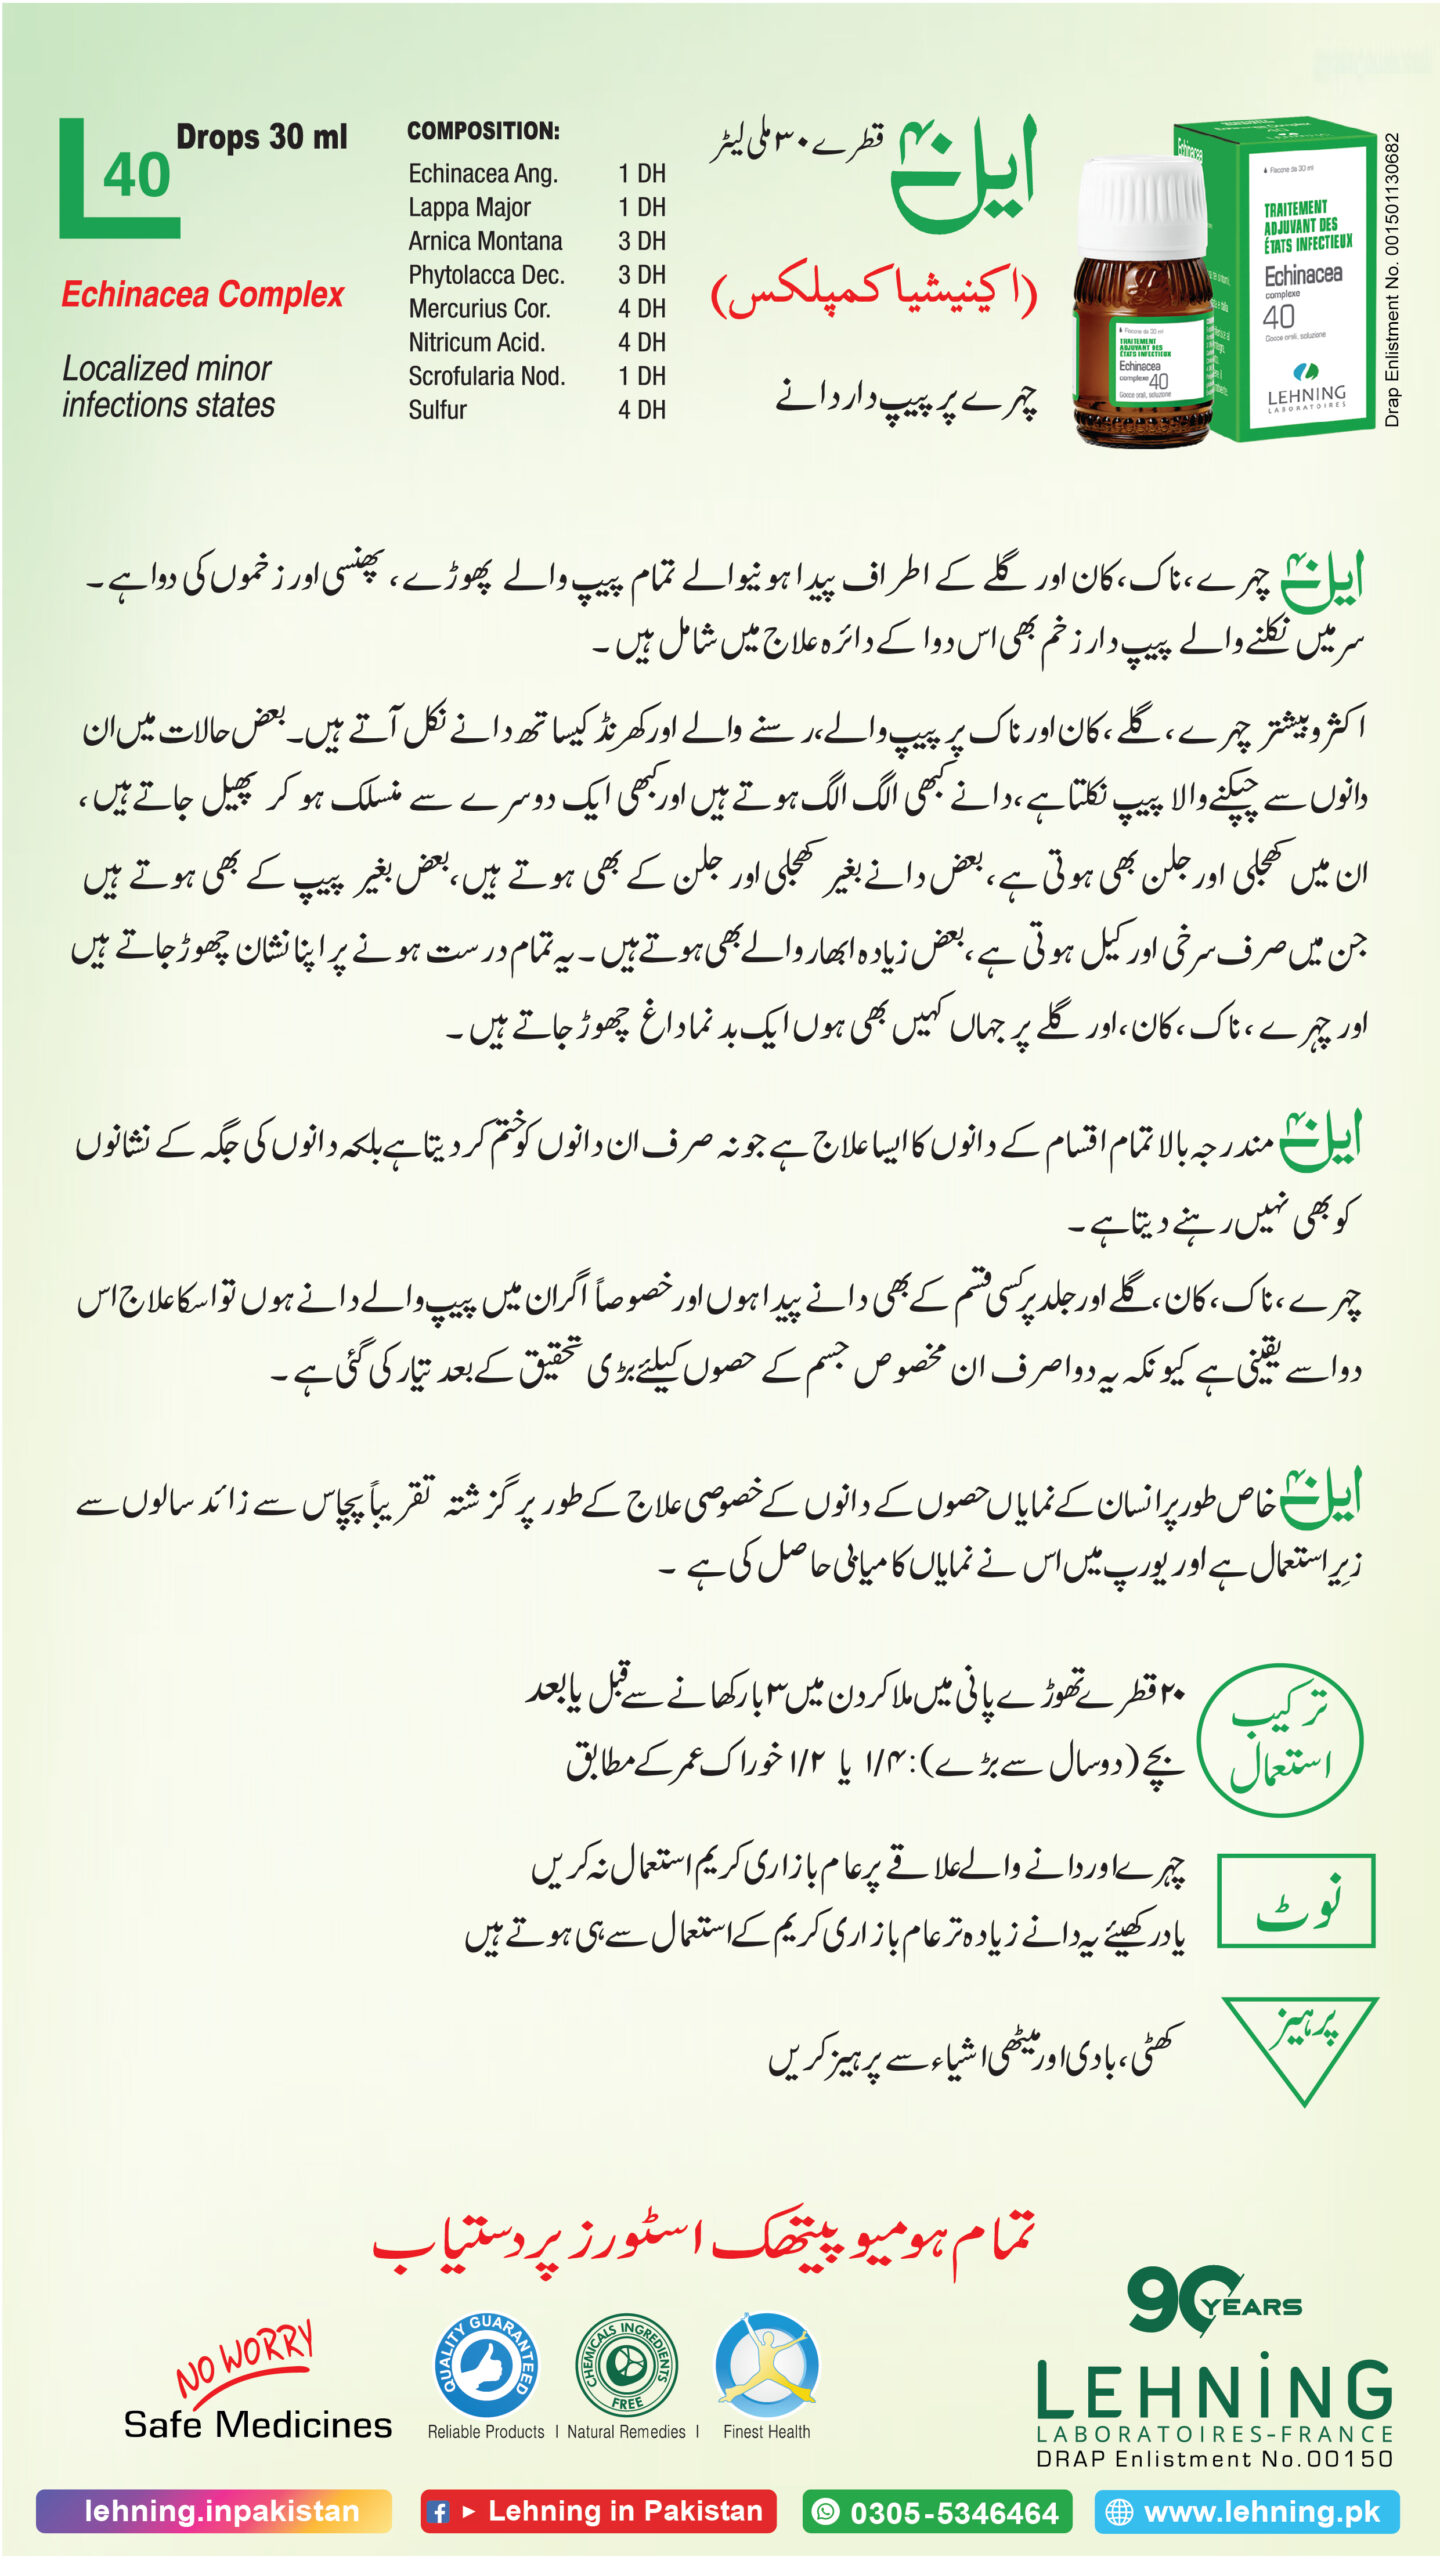 L 40
Drops 30 ml
Echinacea Complex
Localized minor
infections states
COMPOSITION:
Echinacea Ang. 1 DH
Lappa Major 1 DH
Arnica Montana 3 DH
Phytolacca Dec. 3 DH
Mercurius Cor. 4 DH
Nitricum Acid. 4 DH
Scrofularia Nod. 1 DH
Sulfur 4 DH
ایل ۴۰ قطرے ۳۰ ملی لیٹر
(اکینیشیا کمپلکس)
چہرے پر پیپ دار دانے
Flacone da 30 ml
TRAITEMENT
ADJUVANT DES
ÉTATS INFECTIEUX
Echinacea
complexe
40
Gocce orali, soluzione
LEHNING
LABORATOIRES
Flacone da 30 ml
TRAITEMENT
ADJUVANT DES
ÉTATS INFECTIEUX
Echinacea
complexe 40
Gocce orali, soluzione
Drap Enlistment No. 001501130682
ایل ۴۰ چہرے، ناک، کان اور گلے کے اطراف پیدا ہونیوالے تمام پیپ والے پھوڑے، پھنسی اور زخموں کی دوا ہے۔
سر میں نکلنے والے پیپ دار زخم بھی اس دوا کے دائرہ علاج میں شامل ہیں۔
اکثر و بیشتر چہرے، گلے، کان اور ناک پر پیپ والے، رسنے والے اور کھرنڈ کیساتھ دانے نکل آتے ہیں۔ بعض حالات میں ان
دانوں سے چپکنے والا پیپ نکلتا ہے، دانے کبھی الگ الگ ہوتے ہیں اور کبھی ایک دوسرے سے منسلک ہو کر پھیل جاتے ہیں،
ان میں کھجلی اور جلن بھی ہوتی ہے، بعض دانے بغیر کھجلی اور جلن کے بھی ہوتے ہیں، بعض بغیر پیپ کے بھی ہوتے ہیں
جن میں صرف سرخی اور کیل ہوتی ہے، بعض زیادہ ابھار والے بھی ہوتے ہیں۔ یہ تمام درست ہونے پر اپنا نشان چھوڑ جاتے ہیں
اور چہرے، ناک، کان، اور گلے پر جہاں کہیں بھی ہوں ایک بدنما داغ چھوڑ جاتے ہیں۔
ایل ۴۰ مندرجہ بالا تمام اقسام کے دانوں کا ایسا علاج ہے جو نہ صرف ان دانوں کو ختم کر دیتا ہے بلکہ دانوں کی جگہ کے نشانوں
کو بھی نہیں رہنے دیتا ہے۔
چہرے، ناک، کان، گلے اور جلد پر کسی قسم کے بھی دانے پیدا ہوں اور خصوصاً اگر ان میں پیپ والے دانے ہوں تو اسکا علاج اس
دوا سے یقینی ہے کیونکہ یہ دوا صرف ان مخصوص جسم کے حصوں کیلئے بڑی تحقیق کے بعد تیار کی گئی ہے۔
ایل ۴۰ خاص طور پر انسان کے نمایاں حصوں کے دانوں کے خصوصی علاج کے طور پر گزشتہ تقریباً پچاس سے زائد سالوں سے
زیرِ استعمال ہے اور یورپ میں اس نے نمایاں کامیابی حاصل کی ہے۔
ترکیب
استعمال
۲۰ قطرے تھوڑے پانی میں ملا کر دن میں ۳ بار کھانے سے قبل یا بعد
بچے (دو سال سے بڑے): ۱/۴ یا ۱/۲ خوراک عمر کے مطابق
نوٹ
چہرے اور دانے والے علاقے پر عام بازاری کریم استعمال نہ کریں
یاد رکھیئے یہ دانے زیادہ تر عام بازاری کریم کے استعمال سے ہی ہوتے ہیں
پرہیز
کھٹی، بادی اور میٹھی اشیاء سے پرہیز کریں
تمام ہومیوپیتھک اسٹورز پر دستیاب
NO WORRY
Safe Medicines
QUALITY GUARANTEED
Reliable Products
CHEMICALS INGREDIENTS FREE
Natural Remedies
Finest Health
90 YEARS
LEHNING
LABORATOIRES-FRANCE
DRAP Enlistment No.00150
lehning.inpakistan
Lehning in Pakistan
0305-5346464
www.lehning.pk